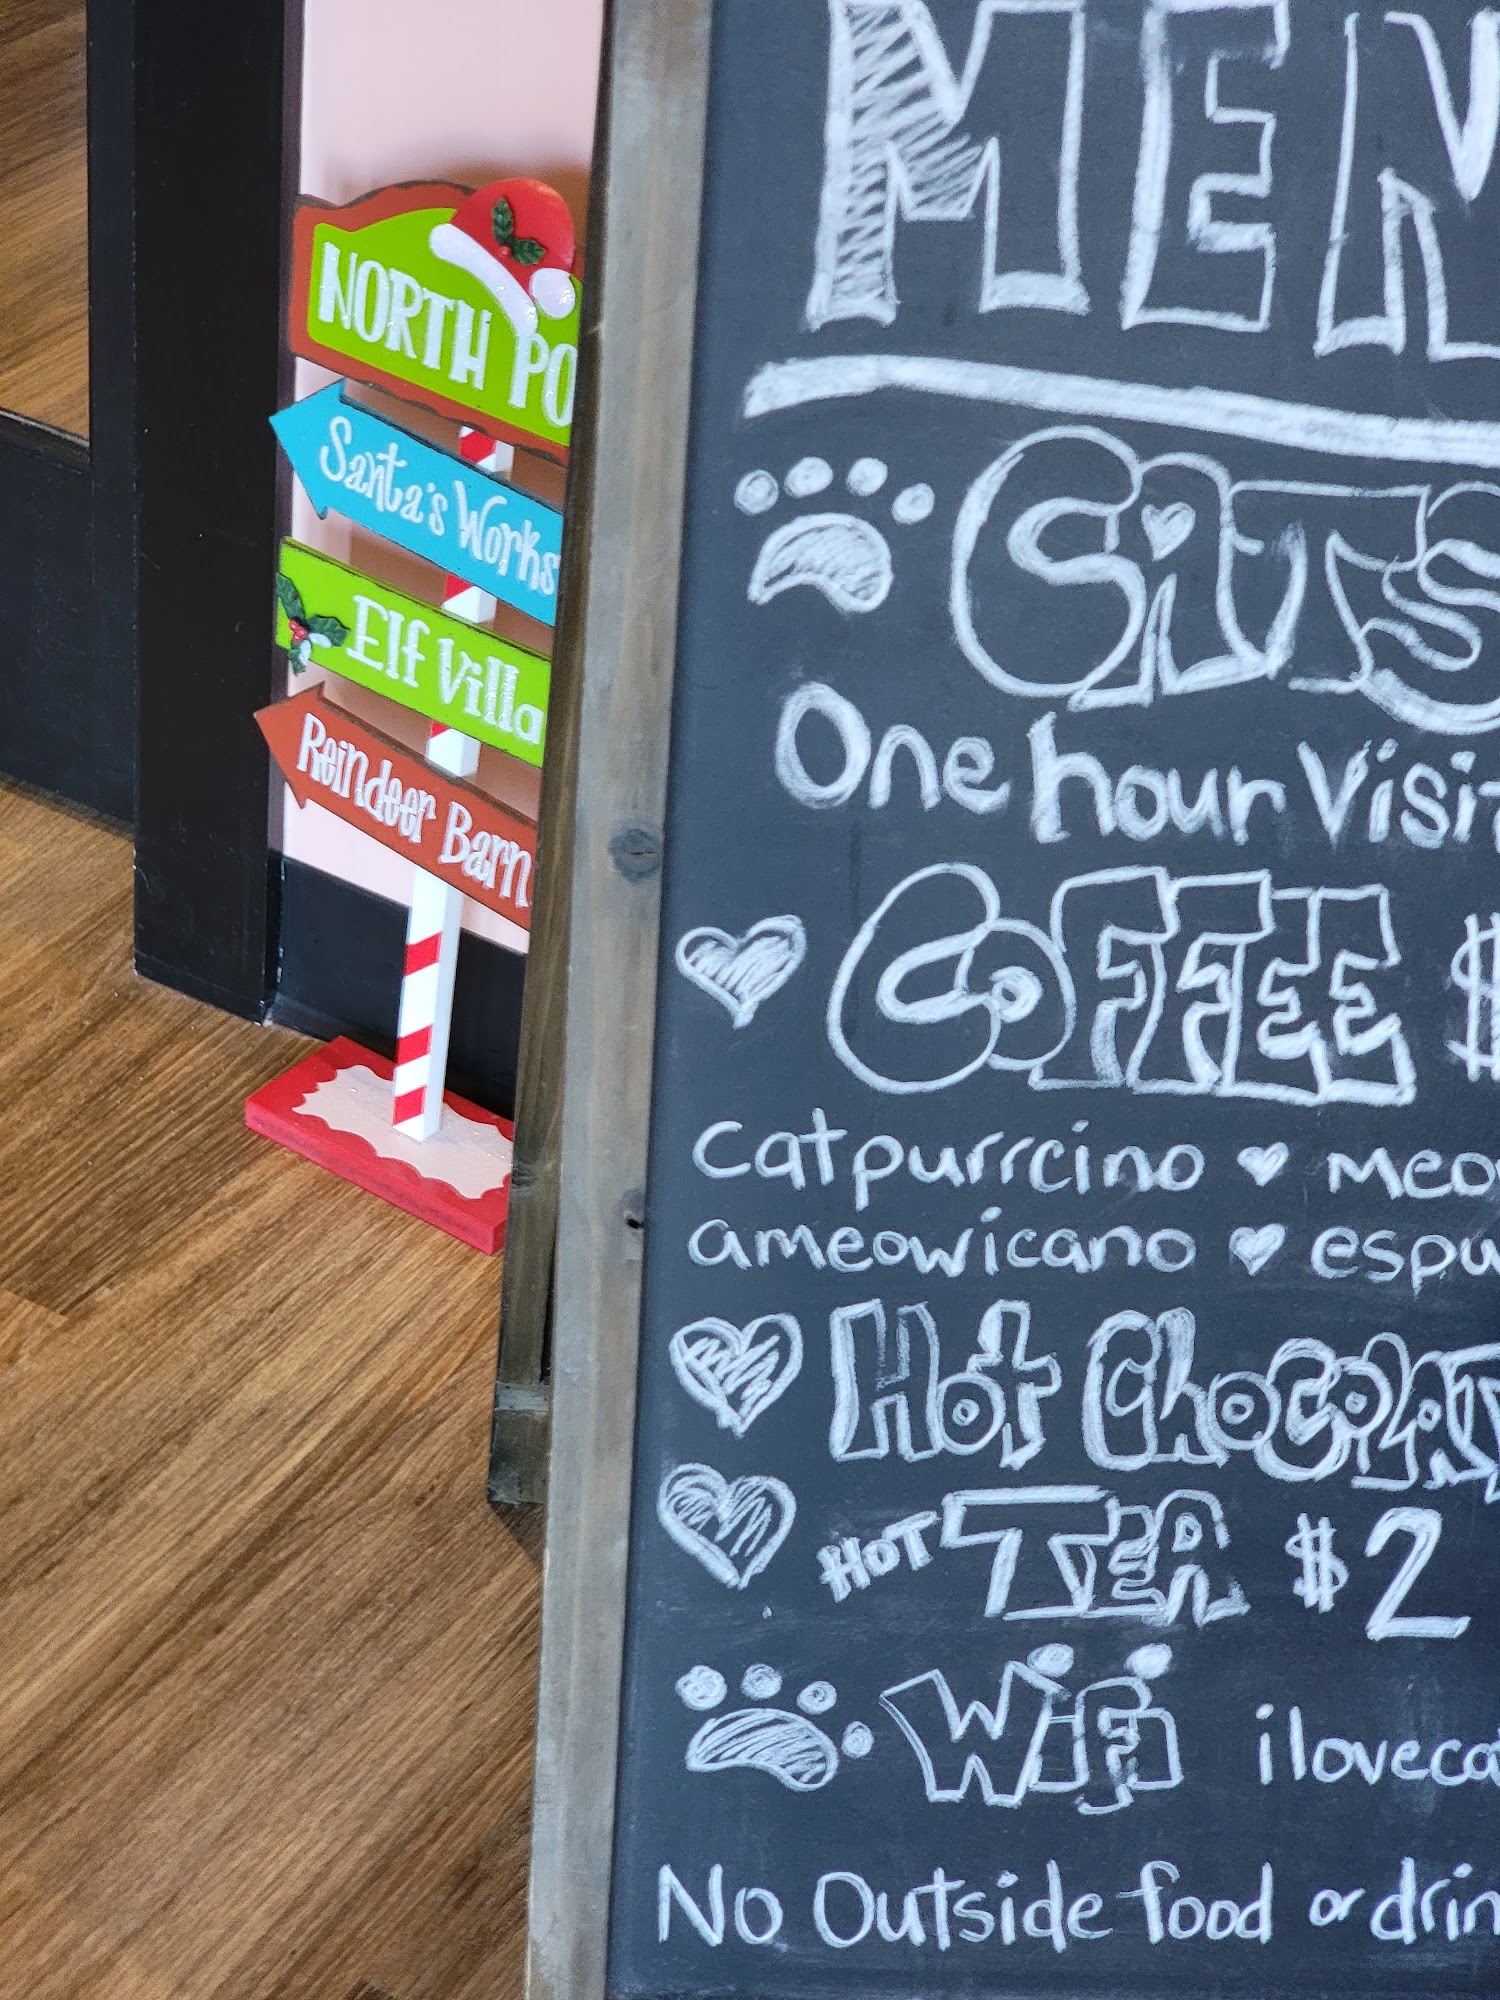 NORTH PO
Santa's Works
Elf Villa
Reindeer Barn
MEN
One hour Visit
COFFEE $
catpurrcino ♥ meo
ameowicano ♥ espu
Hot Chocolat
HOT TEA $2
WiFi ilovecat
No Outside food or drin